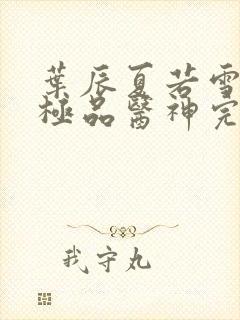 葉辰夏若雪
極品醫神完
我守丸